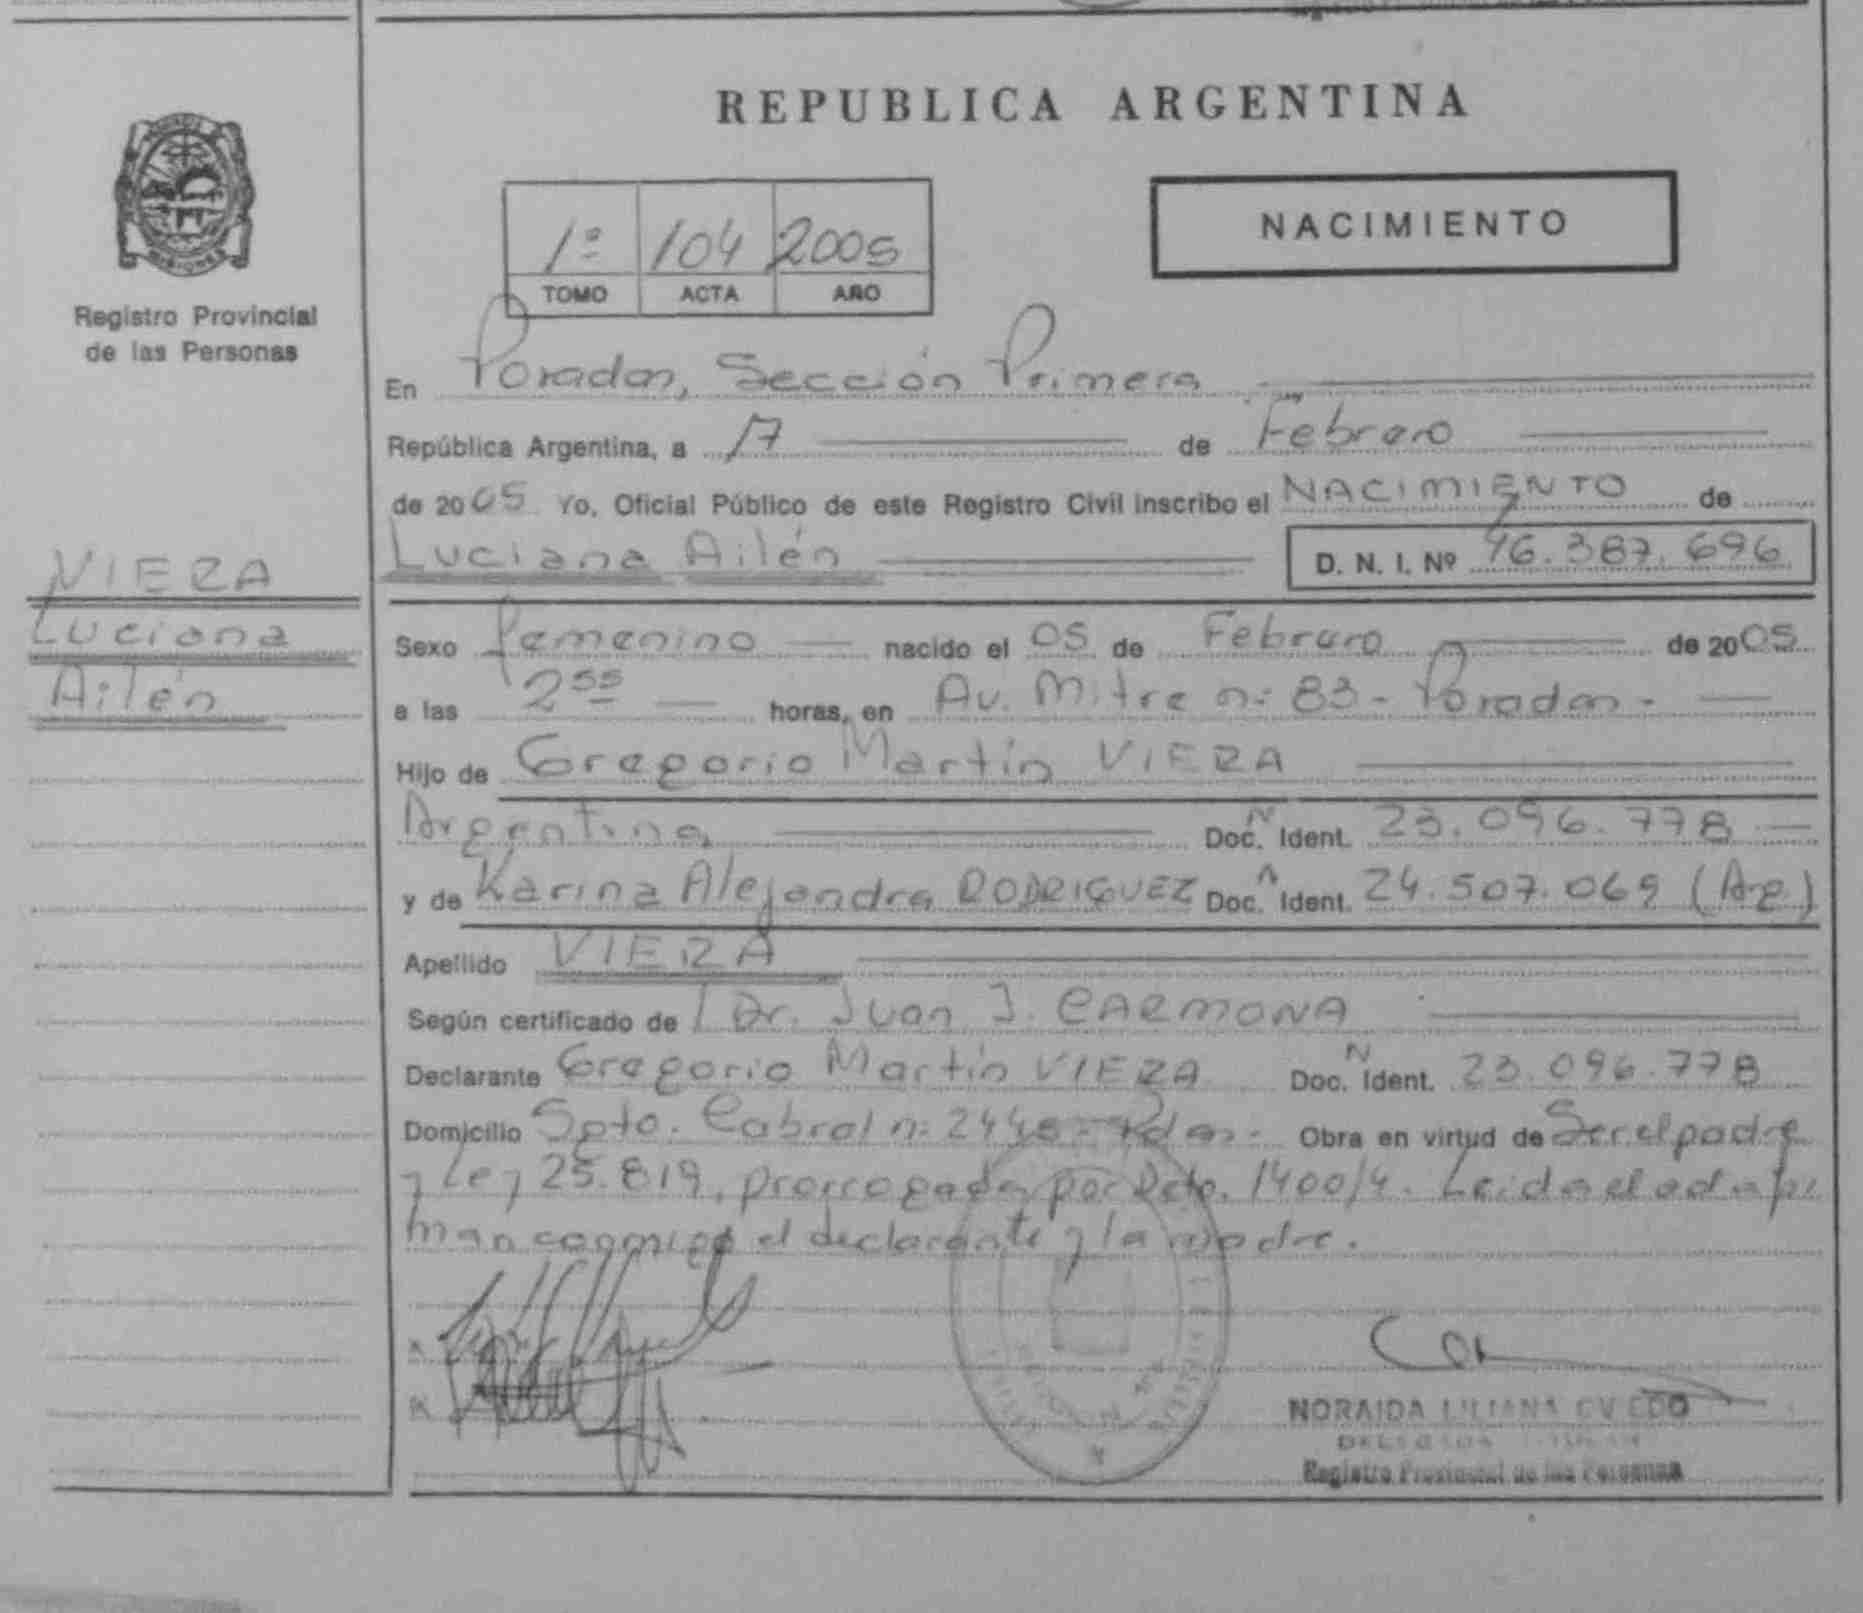 REPUBLICA ARGENTINA
NACIMIENTO
1º 104 2005
TOMO ACTA AÑO
MISIONES
Registro Provincial
de las Personas
En Posadas, Sección Primera
República Argentina, a 17 de Febrero
de 2005 Yo, Oficial Público de este Registro Civil inscribo el NACIMIENTO de
Luciana Ailén D. N. I. Nº 46.387.696
VIERA
Luciana
Ailén
Sexo femenino nacido el 05 de Febrero de 2005
a las 2⁵⁵ horas, en Av. Mitre n: 83 - Posadas -
Hijo de Gregorio Martín VIERA
Argentina Doc. N Ident. 23.096.778
y de Karina Alejandra RODRIGUEZ Doc. N Ident. 24.507.069 (Arg)
Apellido VIERA
Según certificado de Dr. Juan J. CARMONA
Declarante Gregorio Martín VIERA Doc. N Ident. 23.096.778
Domicilio Sgto. Cabral n: Pdas. Obra en virtud de Ser el padre
y Ley 25.819, prorrogada por Dcto. 1400/4. Leída el acta fir
man conmigo el declarante y la madre.
NORAIDA LILIANA OVIEDO
Registro Provincial de las Personas